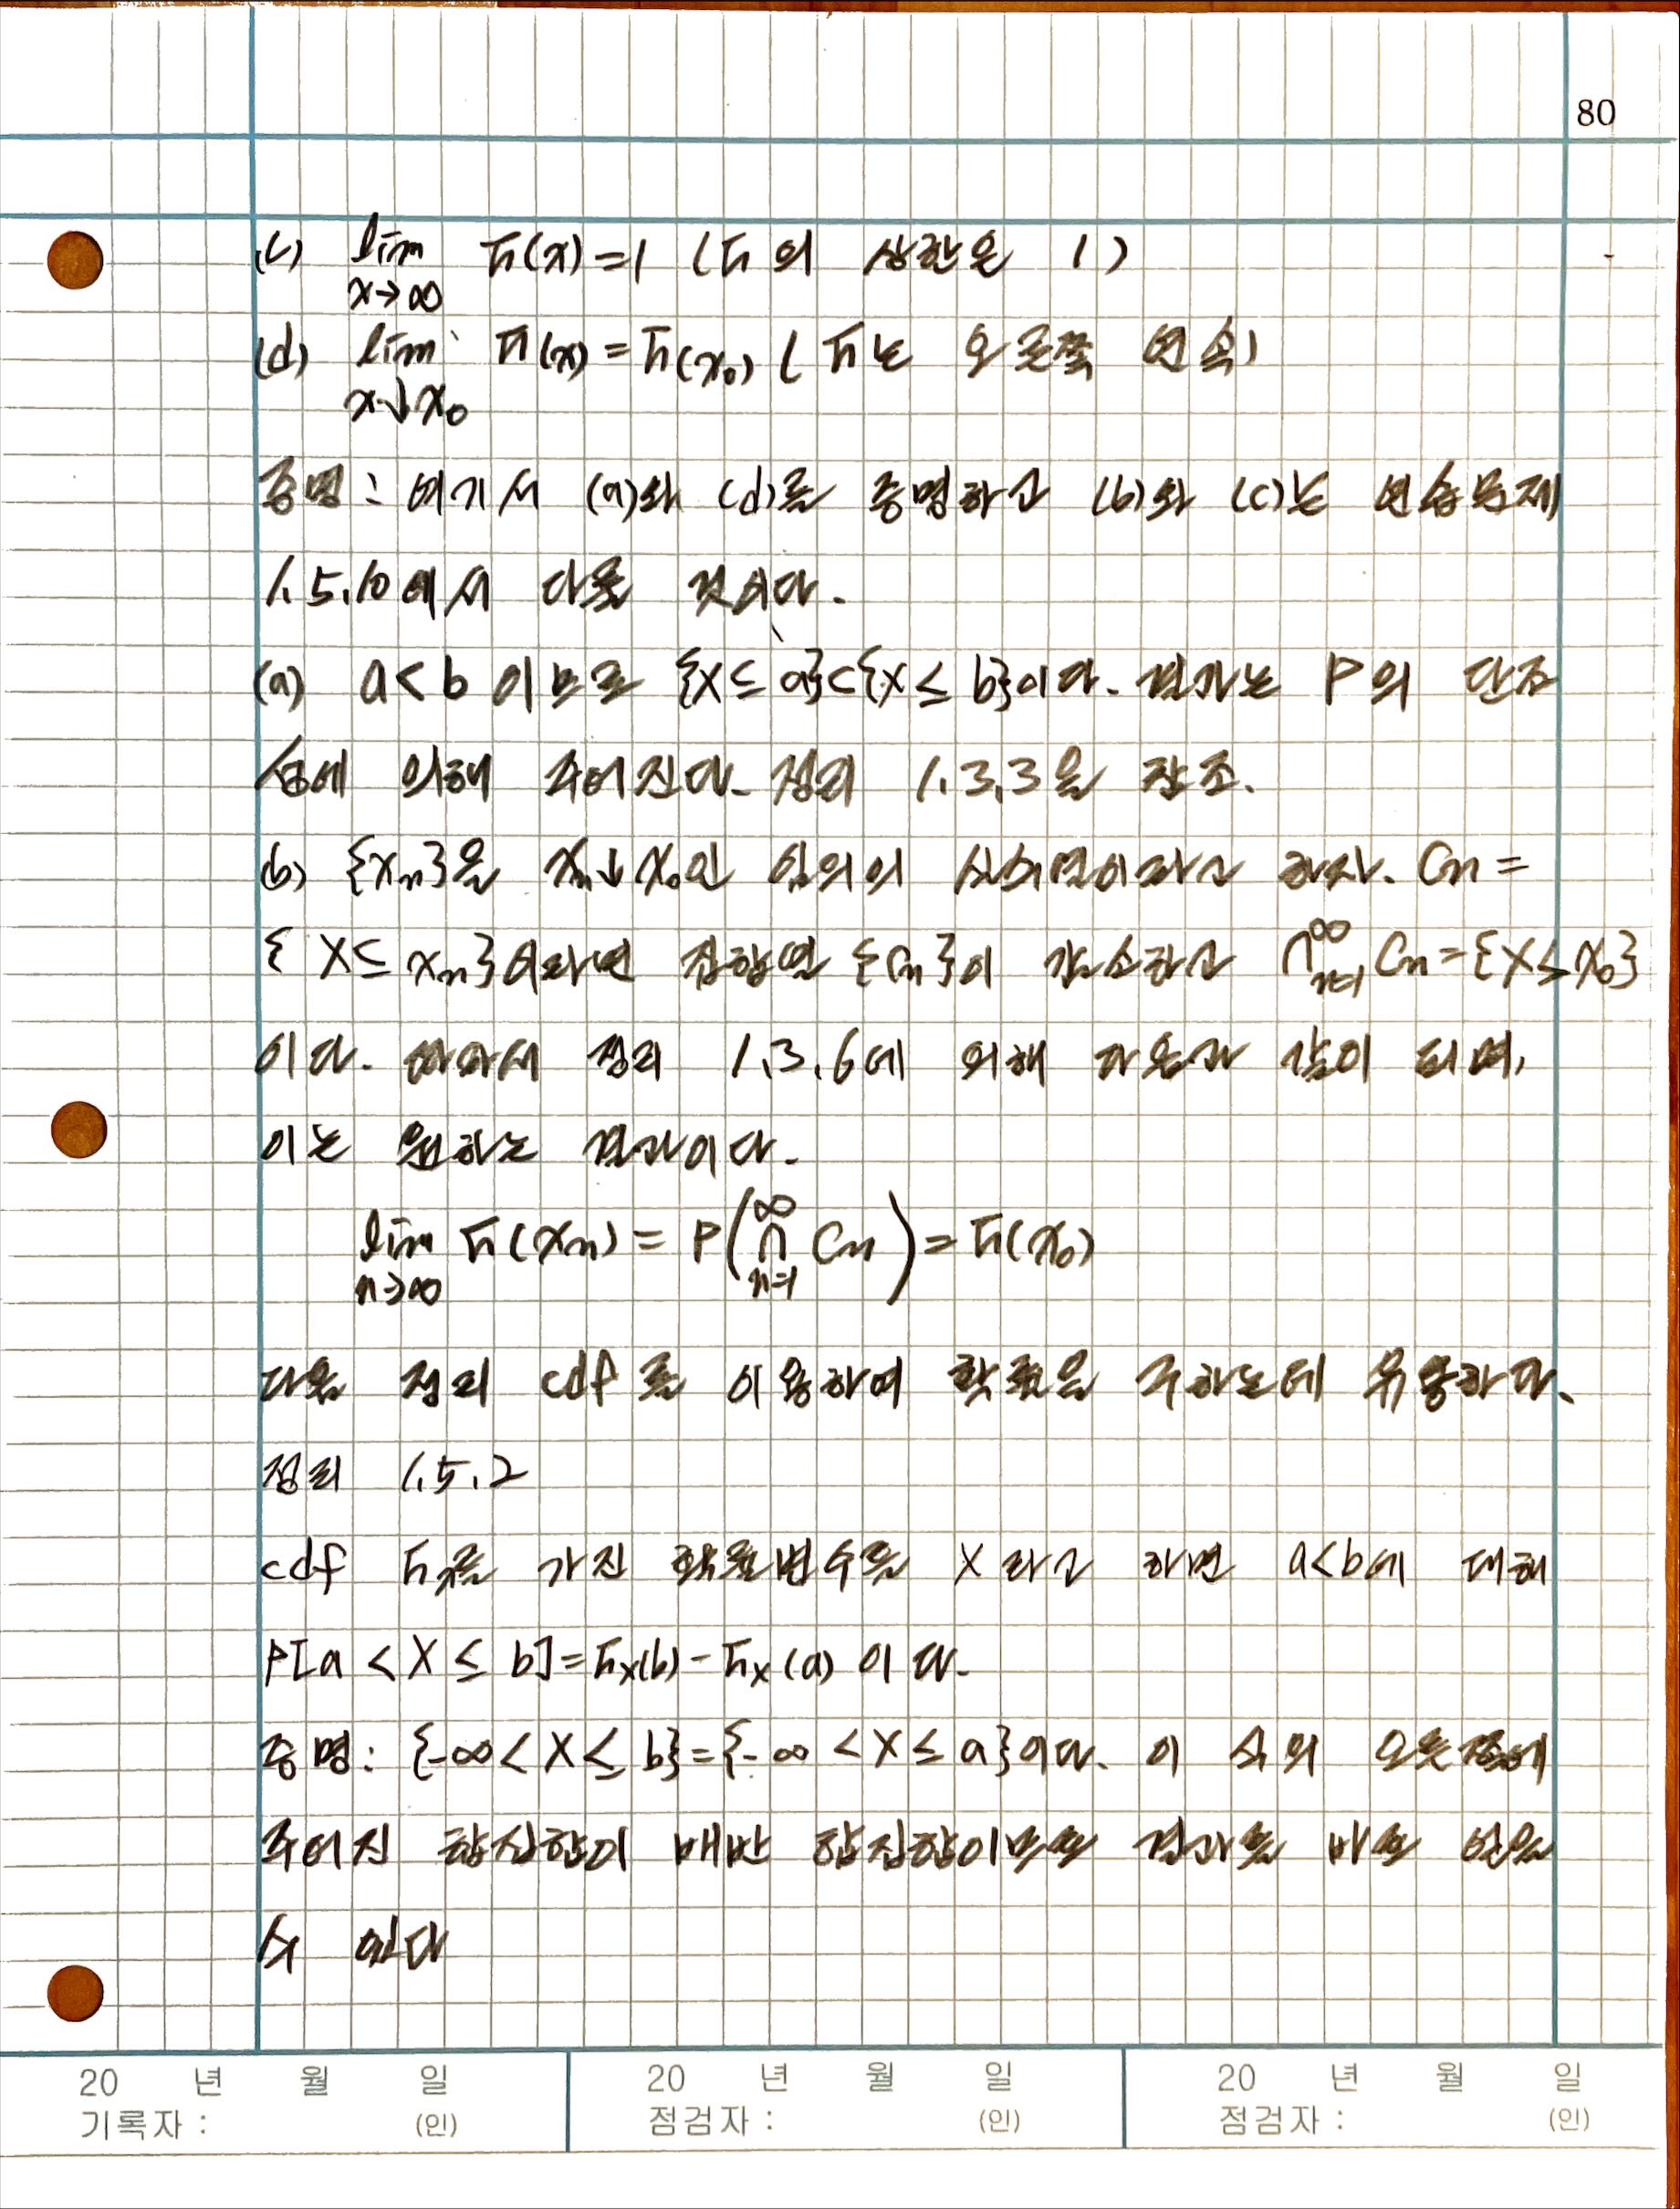 80
(c) lim F(x)=1 (F의 상한은 1)
x→∞
(d) lim F(x)=F(x₀) (F는 오른쪽 연속)
x↓x₀
증명: 여기서 (a)와 (d)를 증명하고 (b)와 (c)는 연습문제
1.5.10에서 다룰 것이다.
(a) a<b 이므로 {X≤a}⊂{X≤b}이다. 결과는 P의 단조
성에 의해 주어진다. 정리 1.3.3을 참조.
(b) {xₙ}을 xₙ↓x₀인 임의의 실수열이라고 하자. Cₙ=
{X≤xₙ}이라면 집합열 {Cₙ}이 감소하고 ∩ₙ₌₁^∞ Cₙ={X≤x₀}
이다. 따라서 정리 1.3.6에 의해 다음과 같이 되며,
이는 원하는 결과이다.
lim F(xₙ)=P(∩ₙ₌₁^∞ Cₙ)=F(x₀)
n→∞
다음 정리 cdf를 이용하여 확률을 구하는데 유용하다.
정리 1.5.2
cdf Fₓ를 가진 확률변수를 X라고 하면 a<b에 대해
P[a<X≤b]=Fₓ(b)-Fₓ(a) 이다.
증명: {-∞<X≤b}={-∞<X≤a}이다. 이 식의 오른쪽에
주어진 합집합이 배반 합집합이므로 결과를 바로 얻을
수 있다
20 년 월 일 20 년 월 일 20 년 월 일
기록자 : (인) 점검자 : (인) 점검자 : (인)